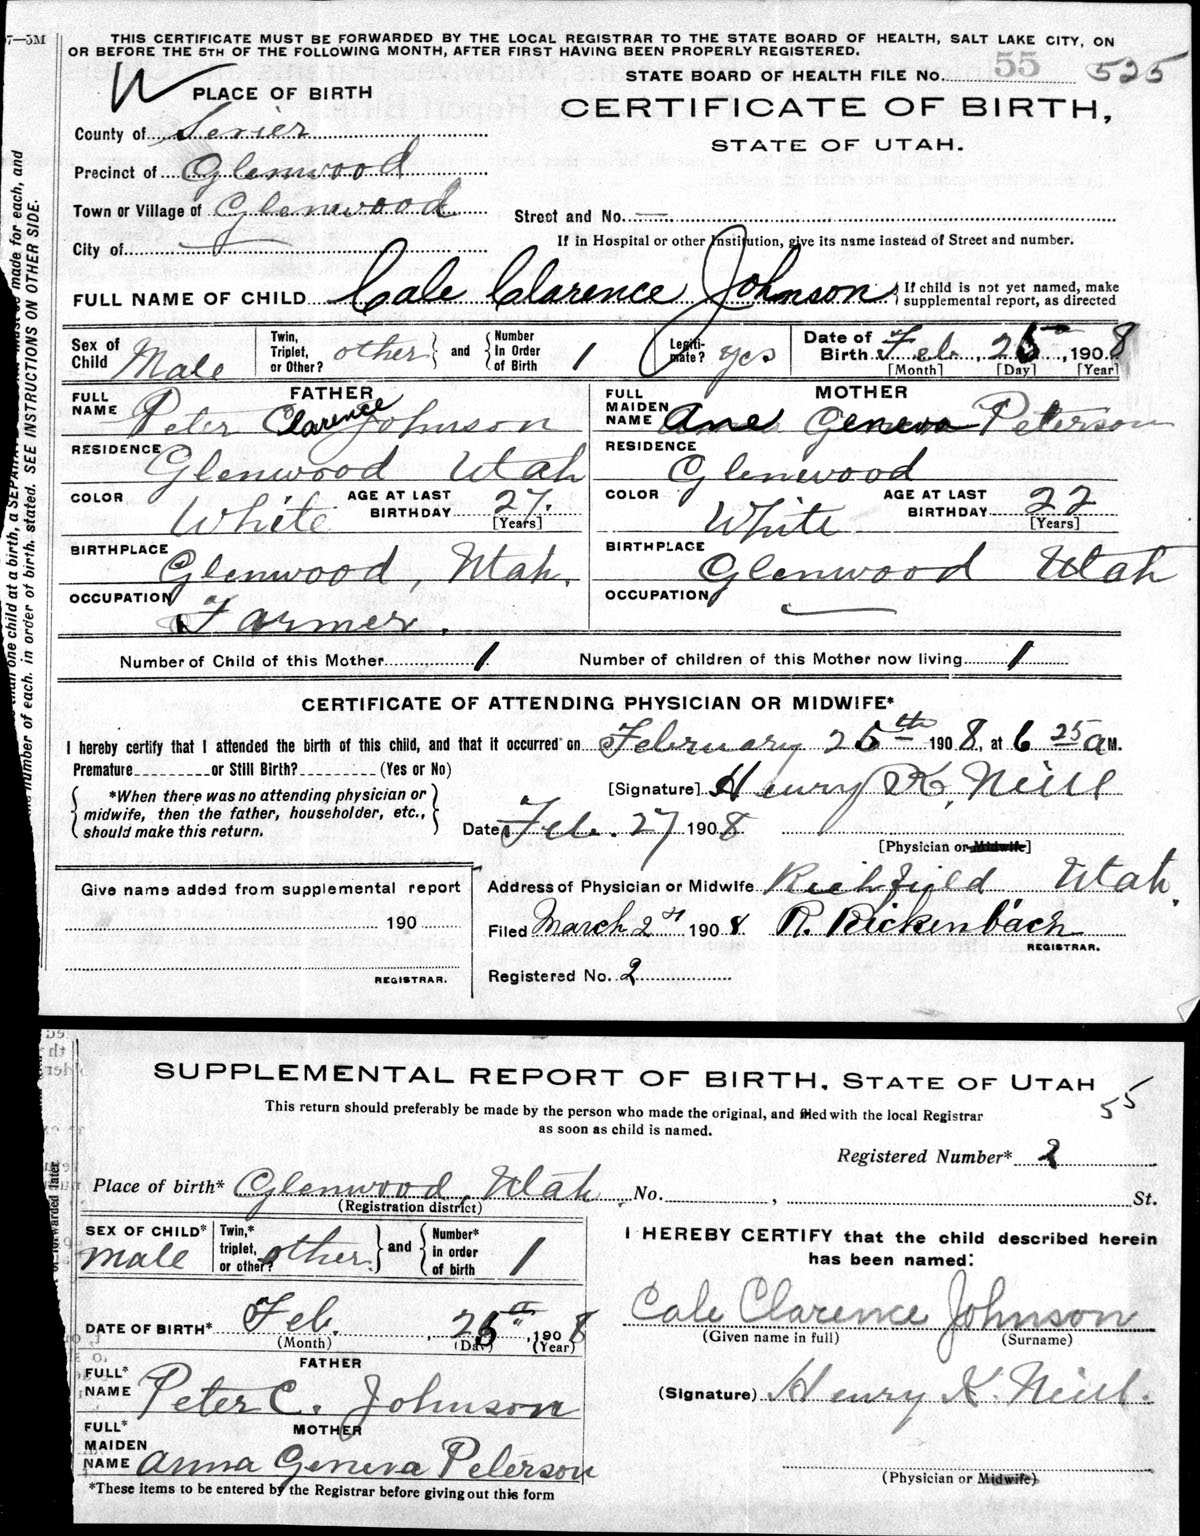 7—5M
THIS CERTIFICATE MUST BE FORWARDED BY THE LOCAL REGISTRAR TO THE STATE BOARD OF HEALTH, SALT LAKE CITY, ON
OR BEFORE THE 5TH OF THE FOLLOWING MONTH, AFTER FIRST HAVING BEEN PROPERLY REGISTERED.
STATE BOARD OF HEALTH FILE No. 55 525
PLACE OF BIRTH
CERTIFICATE OF BIRTH,
STATE OF UTAH.
County of Sevier
Precinct of Glenwood
Town or Village of Glenwood
Street and No. —
City of
If in Hospital or other Institution, give its name instead of Street and number.
FULL NAME OF CHILD Cale Clarence Johnson { If child is not yet named, make supplemental report, as directed
Sex of Child Male Twin, Triplet, or Other? other } and { Number in Order of Birth 1 Legitimate? yes Date of Birth Feb. 26, 1908
[Month] [Day] [Year]
FATHER MOTHER
FULL NAME Peter Clarence Johnson FULL MAIDEN NAME Ane Geneva Peterson
RESIDENCE Glenwood Utah RESIDENCE Glenwood
COLOR White AGE AT LAST BIRTHDAY 27. [Years] COLOR White AGE AT LAST BIRTHDAY 22 [Years]
BIRTHPLACE Glenwood, Utah. BIRTHPLACE Glenwood Utah
OCCUPATION Farmer. OCCUPATION —
Number of Child of this Mother 1 Number of children of this Mother now living 1
CERTIFICATE OF ATTENDING PHYSICIAN OR MIDWIFE*
I hereby certify that I attended the birth of this child, and that it occurred on February 26th 1908, at 6 25 a M.
Premature or Still Birth? (Yes or No)
[Signature] Henry K. Neill
{ *When there was no attending physician or midwife, then the father, householder, etc., should make this return. }
Date Feb. 27 1908
[Physician or Midwife]
Give name added from supplemental report
190
REGISTRAR.
Address of Physician or Midwife Richfield Utah.
Filed March 2nd 1908. R. Rickenbach
REGISTRAR.
Registered No. 2
number of each, in order of birth, stated. SEE INSTRUCTIONS ON OTHER SIDE.
than one child at a birth, a SEPARATE must be made for each, and
SUPPLEMENTAL REPORT OF BIRTH, STATE OF UTAH
55
This return should preferably be made by the person who made the original, and filed with the local Registrar
as soon as child is named.
Registered Number* 2
Place of birth* Glenwood, Utah, No. , St.
(Registration district)
SEX OF CHILD* male Twin,* triplet, or other? other } and { Number* in order of birth 1
I HEREBY CERTIFY that the child described herein
has been named:
Cale Clarence Johnson
(Given name in full) (Surname)
DATE OF BIRTH* Feb. , 26th, 1908
(Month) (Day) (Year)
FATHER
FULL* NAME Peter C. Johnson
(Signature) Henry K. Neill.
MOTHER
FULL* MAIDEN NAME Anna Geneva Peterson
(Physician or Midwife)
*These items to be entered by the Registrar before giving out this form